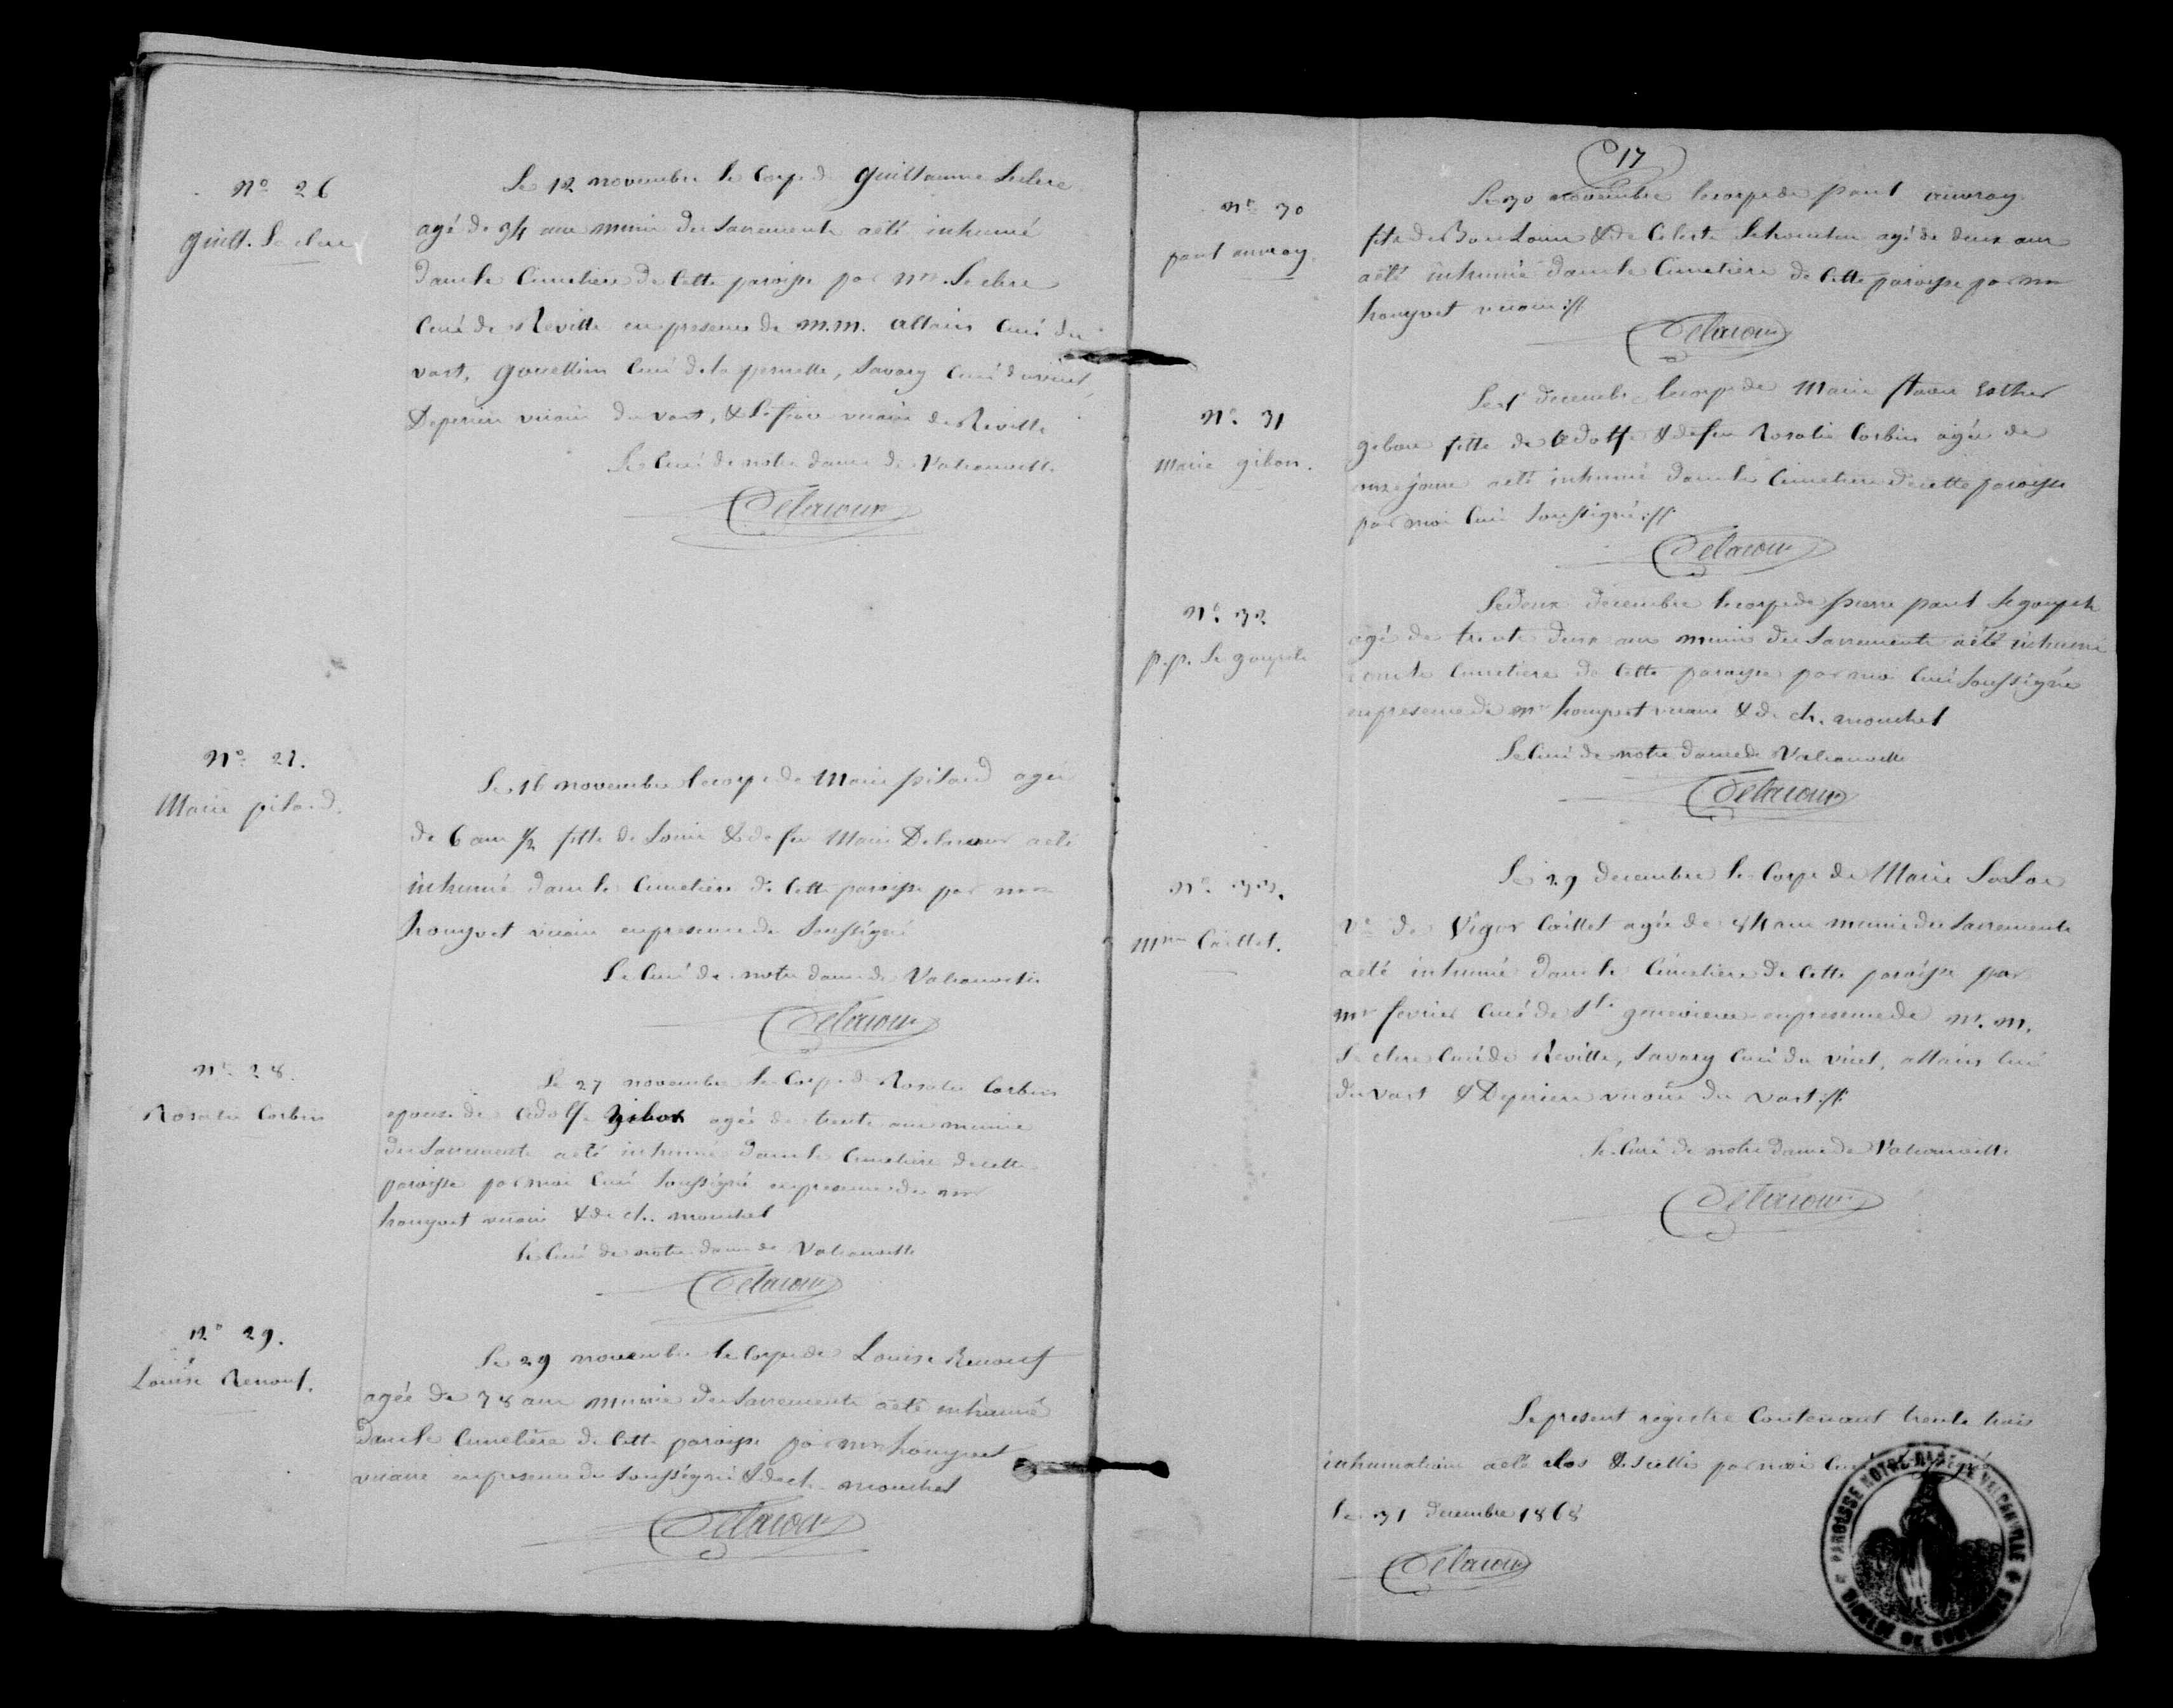 N° 26
Guill. Le clerc
Le 12 novembre le Corps de Guillaume Leclerc
agé de 34 ans muni des Sacrements a été inhumé
dans le Cimetiere de Cette paroisse par Mr. Le clerc
Curé de Reville en presence de M.M. Allain Curé du
vast, Gouellin Curé de la pernelle, Savary Curé du vicel,
Deperiers vicaire du vast, & vicaire de Reville
Le Curé de notre dame de Valcanville
Delacour
N° 27.
Marie pitard.
Le 16 novembre le corps de Marie pitard agée
de 6 ans 1/2 fille de Louis & de feu Marie Delacour a été
inhumé dans le Cimetiere de Cette paroisse par mr
houyvet vicaire en presence du Soussigné
Le Curé de notre dame de Valcanville
Delacour
N° 28.
Rosalie Corbin
Le 27 novembre le Corps de Rosalie Corbin
epouse de Adolfe gibon agée de trente ans munie
des Sacrements a été inhumé dans le Cimetiere de cette
paroisse par moi Curé Soussigné en presence de mr
houyvet vicaire & de ch. mouchel
Le Curé de notre dame de Valcanville
Delacour
N° 29.
Louise Renouf.
Le 29 novembre le Corps de Louise Renouf
agée de 78 ans munie des Sacrements a été inhumé
dans le Cimetière de Cette paroisse par mr houyvet
vicaire en presence du Soussigné & de ch. mouchel
Delacour
17
N° 30
paul auvray.
Le 30 novembre le corps de paul auvray
fils de Bon Louis & de Celeste agé de deux ans
a été inhumé dans le Cimetière de Cette paroisse par mr
houyvet vicaire
Delacour
N° 31
Marie gibon.
Le 1er decembre le corps de Marie Esther
gibon fille de Adolfe & de feu Rosalie Corbin agée de
onze jours a été inhumé dans le Cimetiere de cette paroisse
par moi Curé Soussigné
Delacour
N° 32
p.p. Le goupil
Le deux decembre le corps de pierre paul Le goupil
agé de trente deux ans muni des Sacrements a été inhumé
dans le Cimetiere de Cette paroisse par moi Curé Soussigné
en presence de mr houyvet vicaire & de ch. mouchel
Le Curé de notre dame de Valcanville
Delacour
N° 33.
Mme Caillet.
Le 29 decembre le Corps de Marie
Ve de Vigor Caillet agée de 84 ans munie des Sacrements
a été inhumé dans le Cimetiere de Cette paroisse par
mr fevrier Curé de Ste genevieve en presence de M.M.
Le clerc Curé de Reville, Savary Curé du vicel, allain Curé
du vast & Deperiers vicaire du vast
Le Curé de notre dame de Valcanville
Delacour
Le present registre Contenant trente trois
inhumations a été clos & scellé par moi Curé
Le 31 decembre 1868
Delacour
PAROISSE NOTRE-DAME DE VALCANVILLE
DIOCESE DE COUTANCES